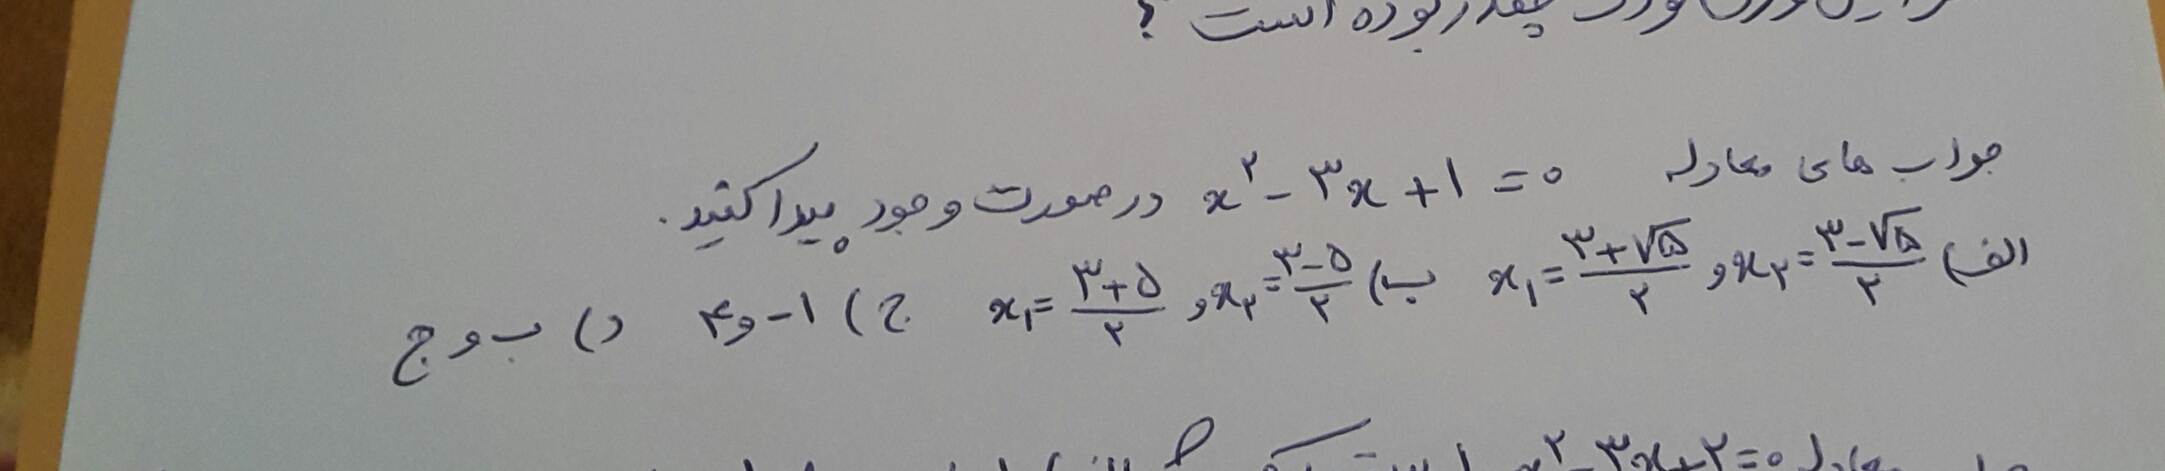 بوده است ؟
جواب های معادله x²-۳x+۱=۰ در صورت وجود پیدا کنید.
الف) x₂=(۳-√۵)/۲ و x₁=(۳+√۵)/۲ ب) x₂=(۳-۵)/۲ و x₁=(۳+۵)/۲ ج) ۱- و ۴ د) ب و ج
معادله x²-۳x+۲=۰